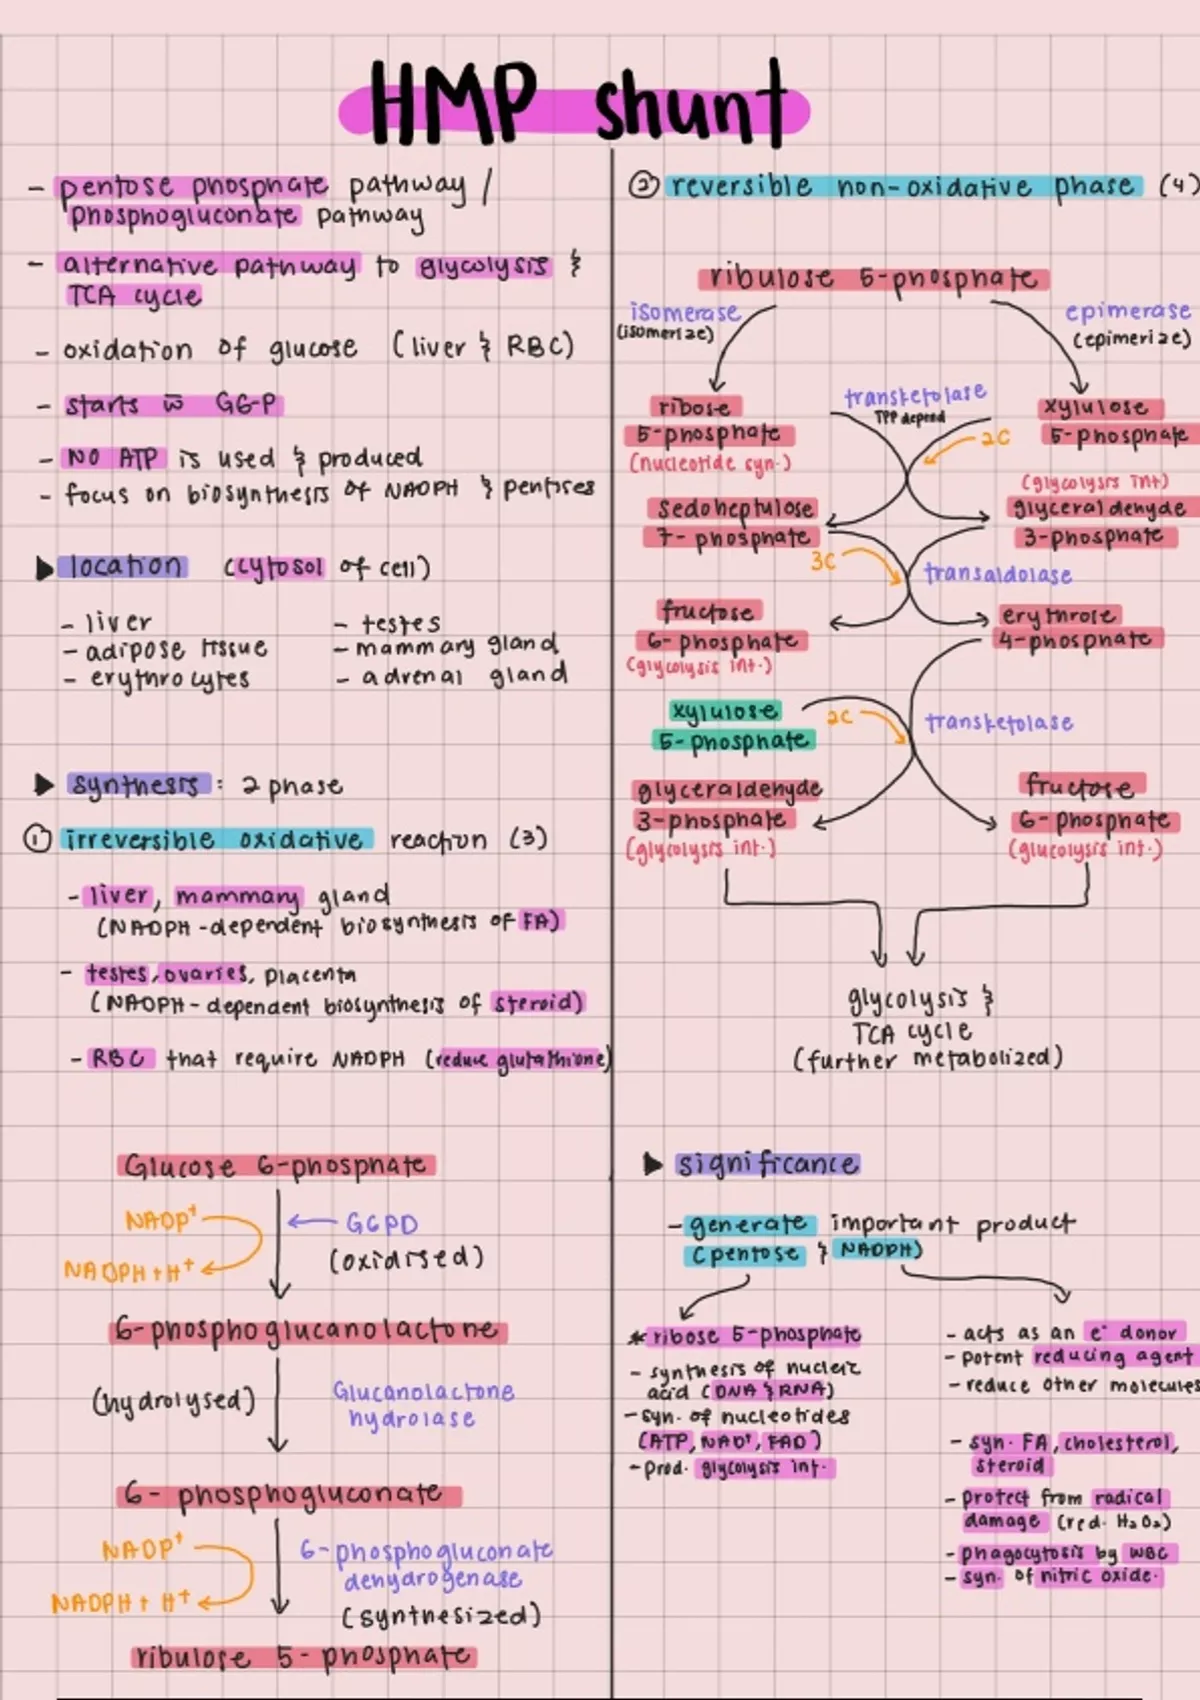 HMP shunt
- pentose phosphate pathway /
phosphogluconate pathway
- alternative pathway to glycolysis &
TCA cycle
- oxidation of glucose (liver & RBC)
- starts w̄ G6-P
- NO ATP is used & produced
- focus on biosynthesis of NADPH & pentoses
▶ location (cytosol of cell)
- liver
- adipose tissue
- erythrocytes
- testes
- mammary gland
- adrenal gland
▶ synthesis : 2 phase
① irreversible oxidative reaction (3)
- liver, mammary gland
(NADPH-dependent biosynthesis of FA)
- testes, ovaries, placenta
(NADPH-dependent biosynthesis of steroid)
- RBC that require NADPH (reduce glutathione)
Glucose 6-phosphate
NADP⁺
NADPH + H⁺
G6PD
(oxidised)
6-phosphoglucanolactone
(hydrolysed)
Glucanolactone
hydrolase
6-phosphogluconate
NADP⁺
NADPH + H⁺
6-phosphogluconate
dehydrogenase
(synthesized)
ribulose 5-phosphate
② reversible non-oxidative phase (4)
ribulose 5-phosphate
isomerase
(isomerize)
epimerase
(epimerize)
ribose
5-phosphate
(nucleotide syn.)
transketolase
TPP depend
2C
xylulose
5-phosphate
sedoheptulose
7-phosphate
(glycolysis int)
glyceraldehyde
3-phosphate
3C
transaldolase
fructose
6-phosphate
(glycolysis int.)
erythrose
4-phosphate
xylulose
5-phosphate
2C
transketolase
glyceraldehyde
3-phosphate
(glycolysis int.)
fructose
6-phosphate
(glucolysis int.)
glycolysis &
TCA cycle
(further metabolized)
▶ significance
- generate important product
(pentose & NADPH)
* ribose 5-phosphate
- synthesis of nucleic
acid (DNA & RNA)
- syn. of nucleotides
(ATP, NAD⁺, FAD)
- prod. glycolysis int.
- acts as an e⁻ donor
- potent reducing agent
- reduce other molecules
- syn. FA, cholesterol,
steroid
- protect from radical
damage (red. H₂O₂)
- phagocytosis by WBC
- syn. of nitric oxide.